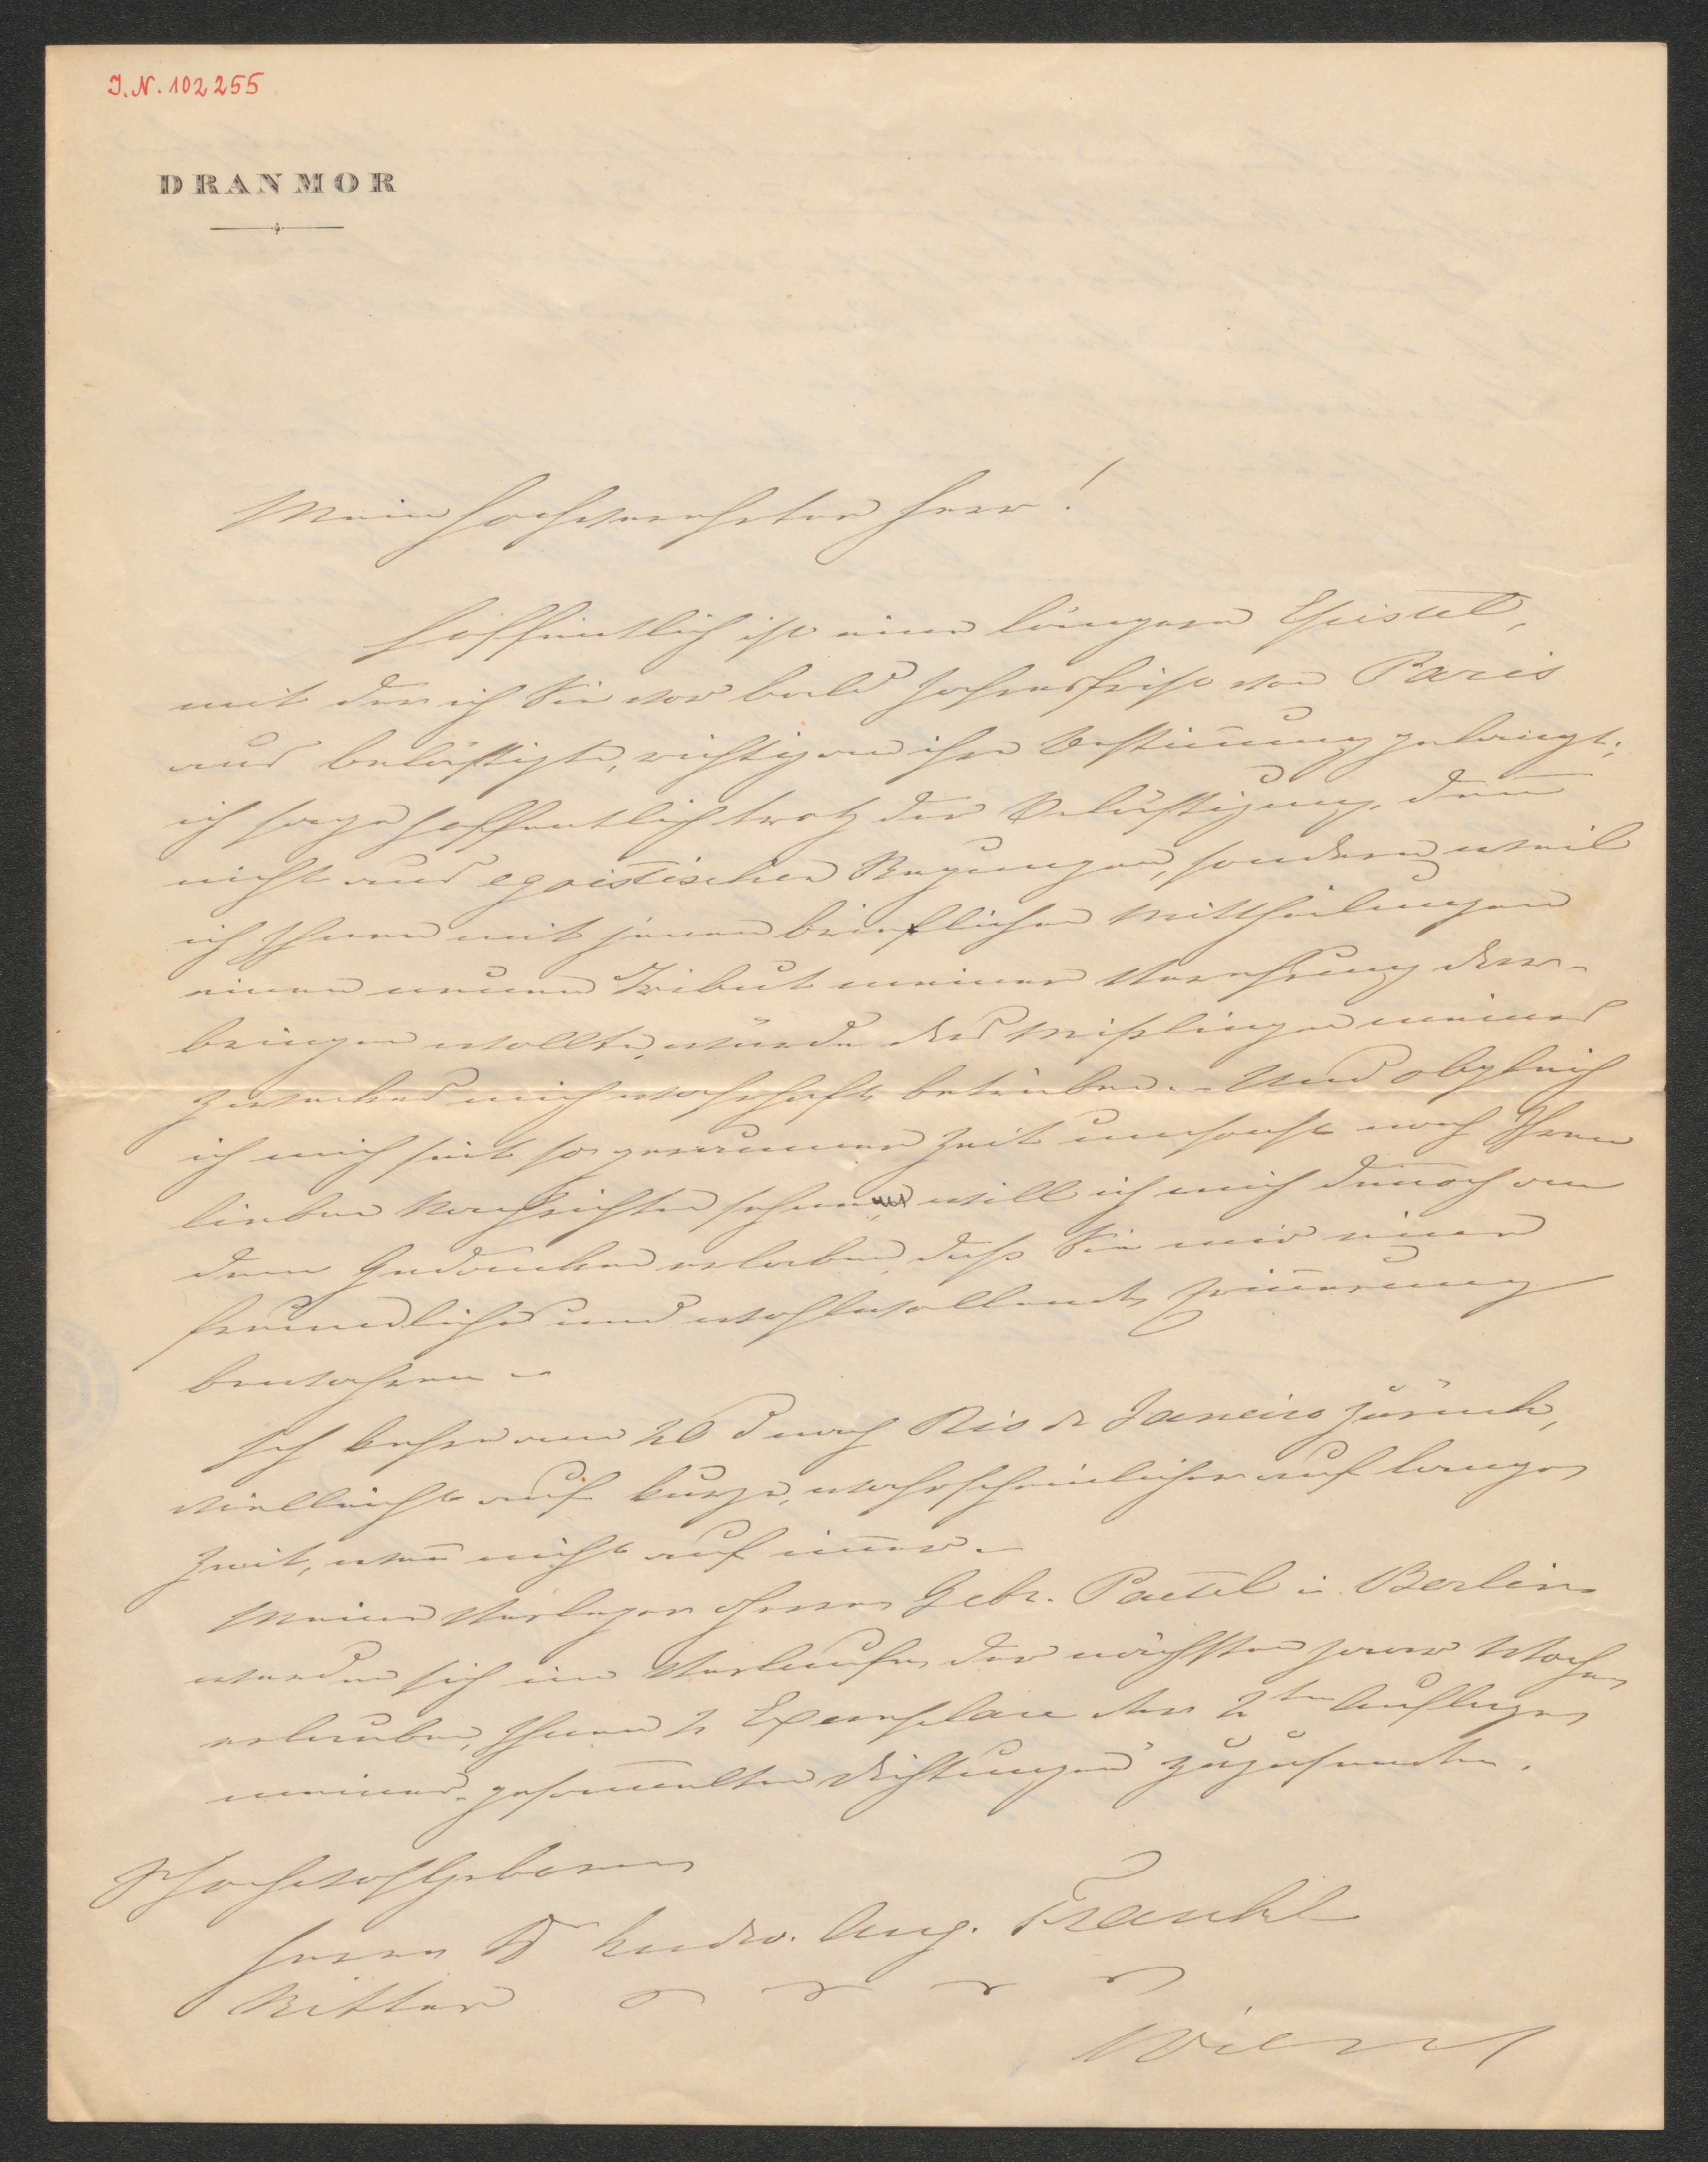 J.N. 102255
DRANMOR
Mein hochverehrter Herr!
Hoffentlich ist eine längere Epistel,
mit der ich Sie vor bald Jahresfrist von Paris
aus belästigte, richtig an ihre Bestim̅ung gelangt;
ich sage hoffentlich trotz der Belästigung, den̅
nicht aus egoistischen Regungen, sondern weil
ich Ihnen mit jenen brieflichen Mittheilungen
einen neuen Tribut meiner Verehrung dar-
bringen wollte, würde das Mißlingen meines
Zweckes mich wahrhaft betrüben. - Und obgleich
ich mich seit so geraumer Zeit umsonst nach Ihren
lieben Nachrichten sehne, will ich mich den̅och an
dem Gedanken erlaben, daß Sie mir eine
freundliche und wohlwollende Erin̅erung
bewahren -
Ich kehre am 20 d nach Rio de Janeiro zurück,
vielleicht auf kurze, wahrscheinlicher auf lange
Zeit, wen̅ nicht auf im̅er. -
Meine Verleger Herren Gebr. Paetel in Berlin
werden sich im Verlaufe der nächsten paar Wochen
erlauben, Ihnen 2 Exemplare der 2ten Auflage
meiner "gesam̅elten Dichtungen" zuzusenden.
Sr Hochwohlgeboren
Herrn Dr Ludw. Aug. Frankl
Ritter
Wien